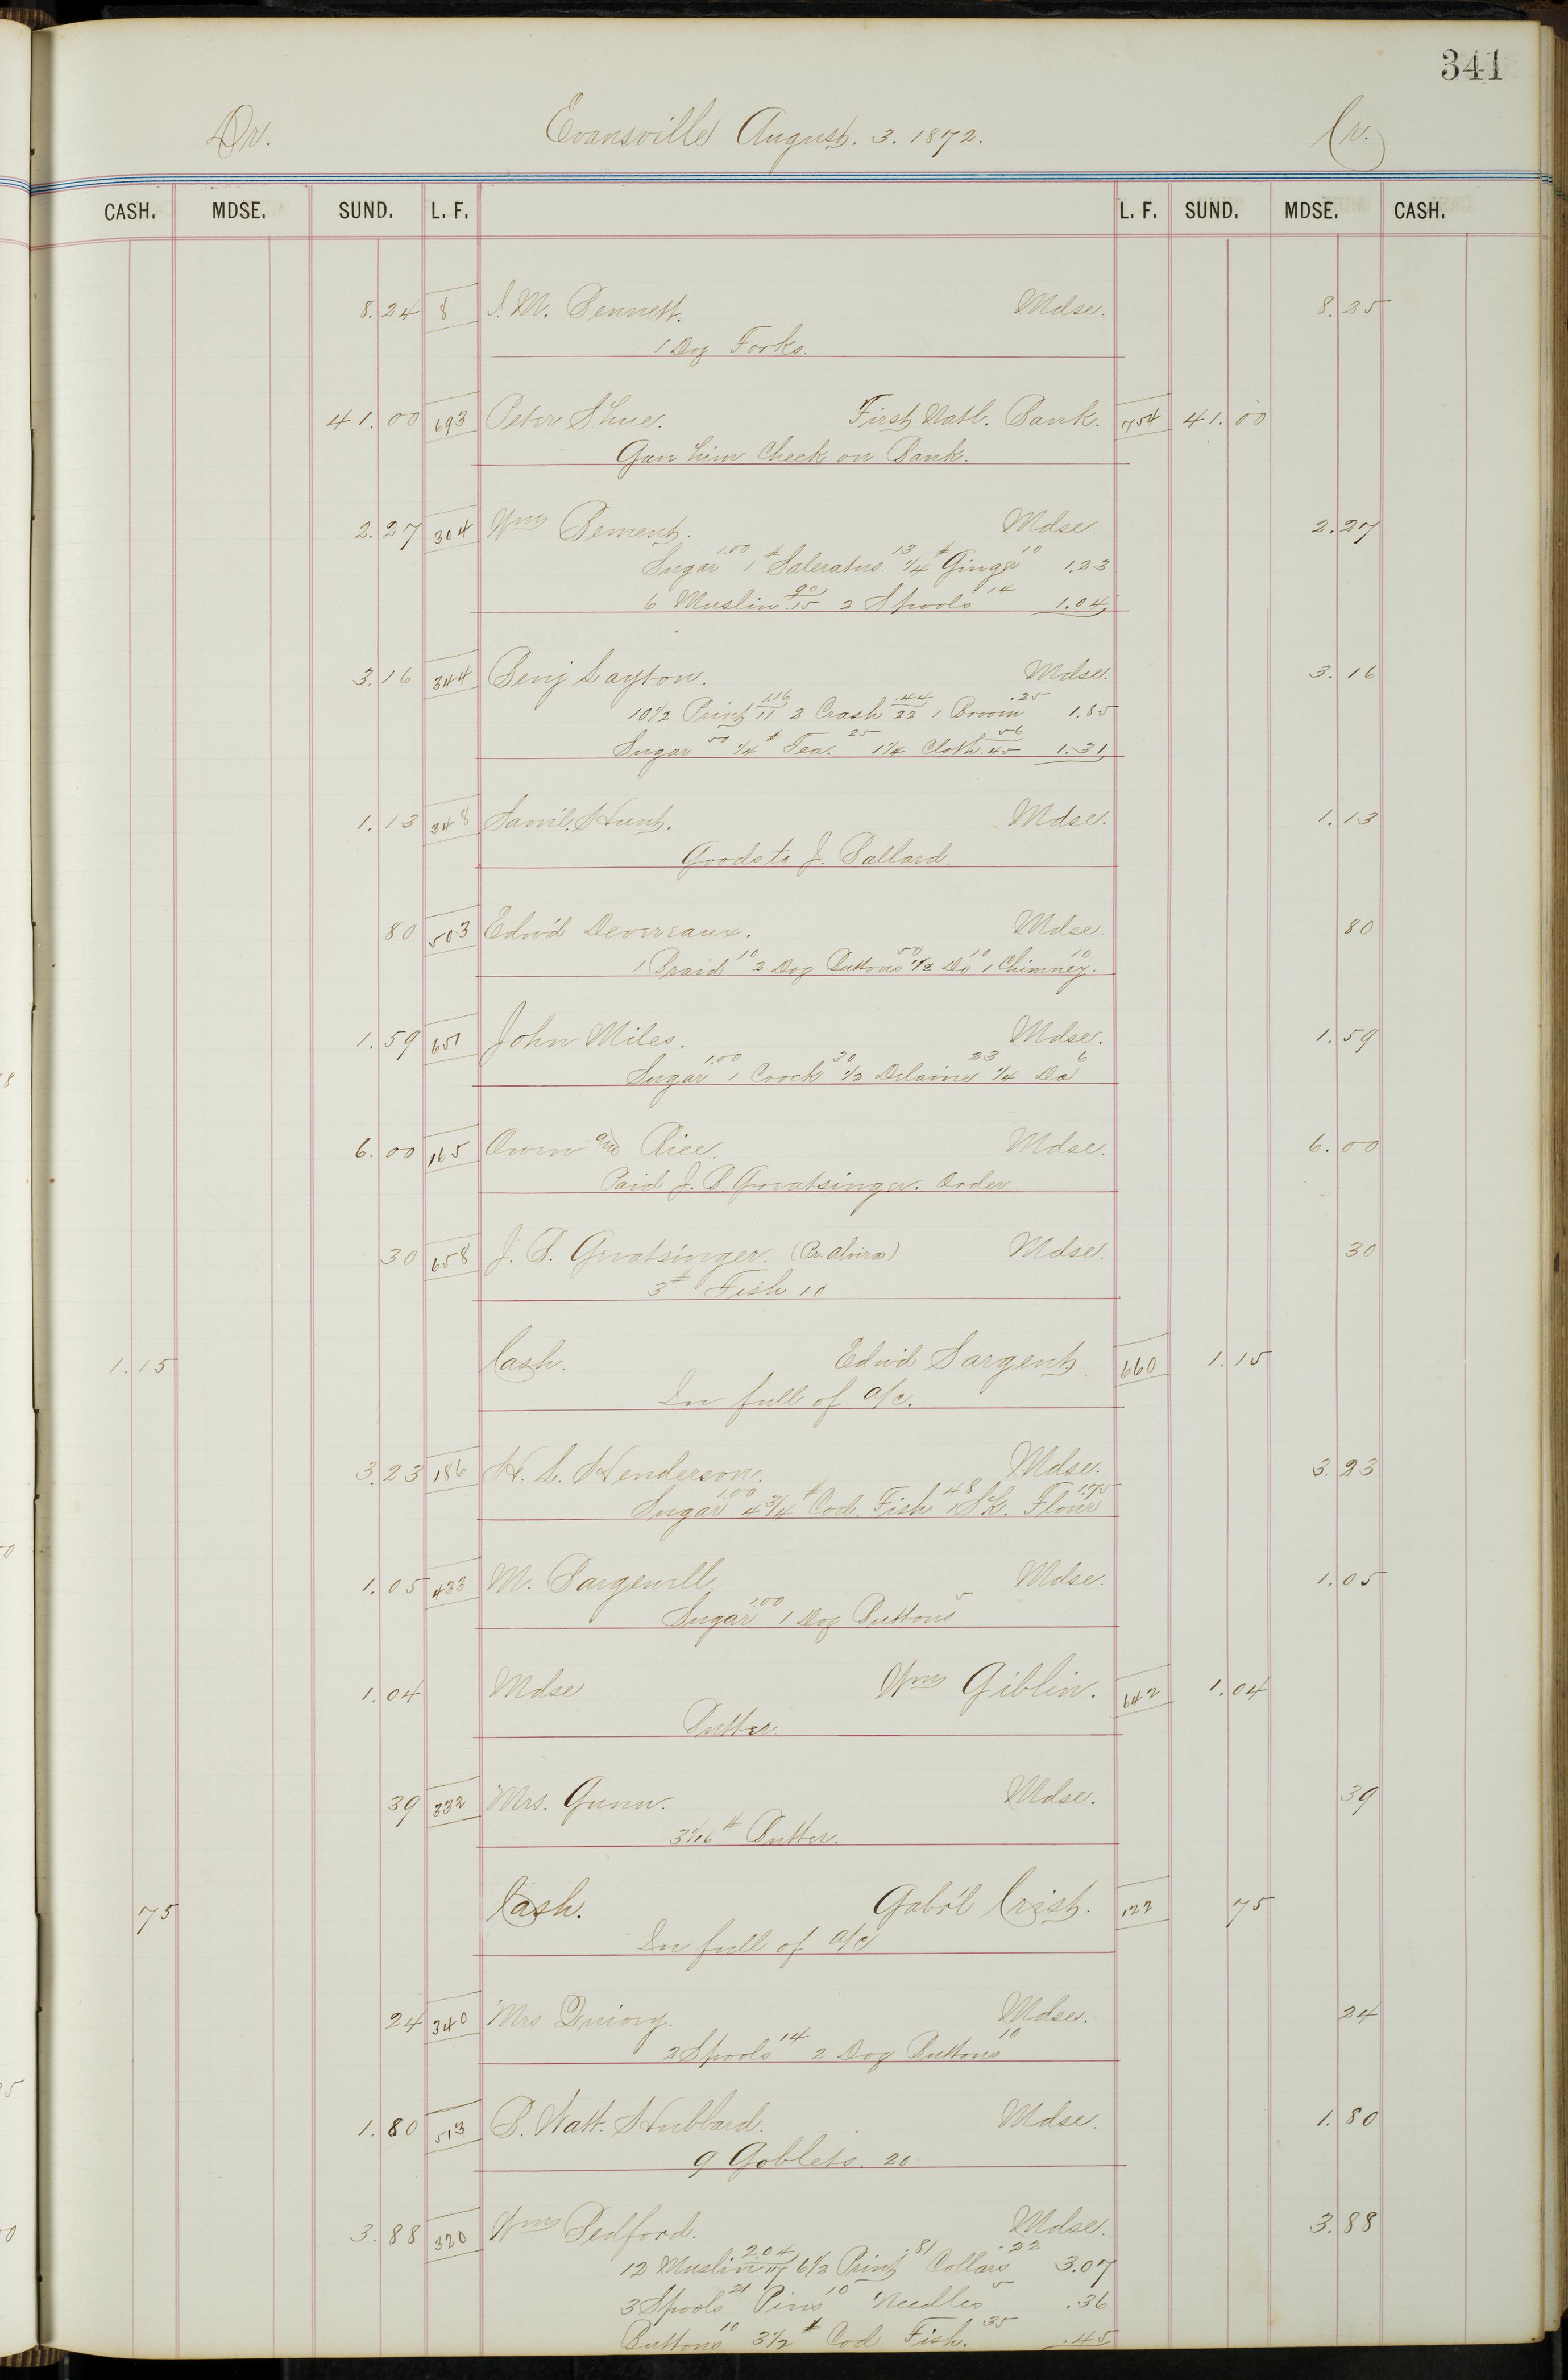 341
Dr. Evansville August. 3. 1872. Cr.
CASH. MDSE. SUND. L. F. L. F. SUND. MDSE. CASH.
8.24 8 S. M. Bennett. Mdse. 8.25
1 Doz Forks.
41.00 693 Peter Shue. First Natl. Bank. 754 41.00
Gave him Check on Bank.
2.27 304 Wm Bement. Mdse. 2.27
Sugar 1.00 1 # Saleratus. 13 1/4 # Ginger 10 1.23
6 Muslin 90/.15 2 Spools 14 1.04
3.16 344 Benj Layton. Mdse. 3.16
10 1/2 Print 1.16/11 2 Crash .44/22 1 Broom .25 1.85
Sugar 50 1/4 # Tea. 25 1 1/4 Cloth. 56/45 1.31
1.13 348 Saml. Hunt. Mdse. 1.13
Goods to J. Ballard.
80 503 Edw'd Devereaux. Mdse. 80
1 Braid 10 2 Doz Buttons 50 1/2 Do 10 1 Chimney. 10
1.59 651 John Miles. Mdse. 1.59
Sugar 1.00 1 Crock 30 1/2 Delaine 23 1/4 Do 6
6.00 165 Owen and Rice. Mdse. 6.00
Paid J. B. Greatsinger. Order
30 658 J. B. Greatsinger. (Pr. Alvira) Mdse. 30
3 # Fish 10
1.15 Cash. Edw'd Sargent 660 1.15
In full of a/c.
3.23 186 H. L. Henderson. Mdse. 3.23
Sugar 1.00 4 3/4 # Cod. Fish 48 1 Sk. Flour 1.75
1.05 433 M. Bargewell. Mdse. 1.05
Sugar 1.00 1 Doz Buttons 5
1.04 Mdse Wm Giblin. 642 1.04
Butter.
39 332 Mrs. Gunn. Mdse. 39
3 1/16 # Butter.
75 Cash. Gabr'l Crist. 122 75
In full of a/c
24 340 Mrs Mdse. 24
2 Spools 14 2 Doz Buttons 10
1.80 513 B. Watt. Hubbard. Mdse. 1.80
9 Goblets. 20
3.88 320 Wm Bedford. Mdse. 3.88
12 Muslin 2.04/17 6 1/2 Print .81 Collars .22 3.07
3 Spools 21 Pins 10 Needles 5 .36
Buttons 10 3 1/2 # Cod Fish. 35 .45